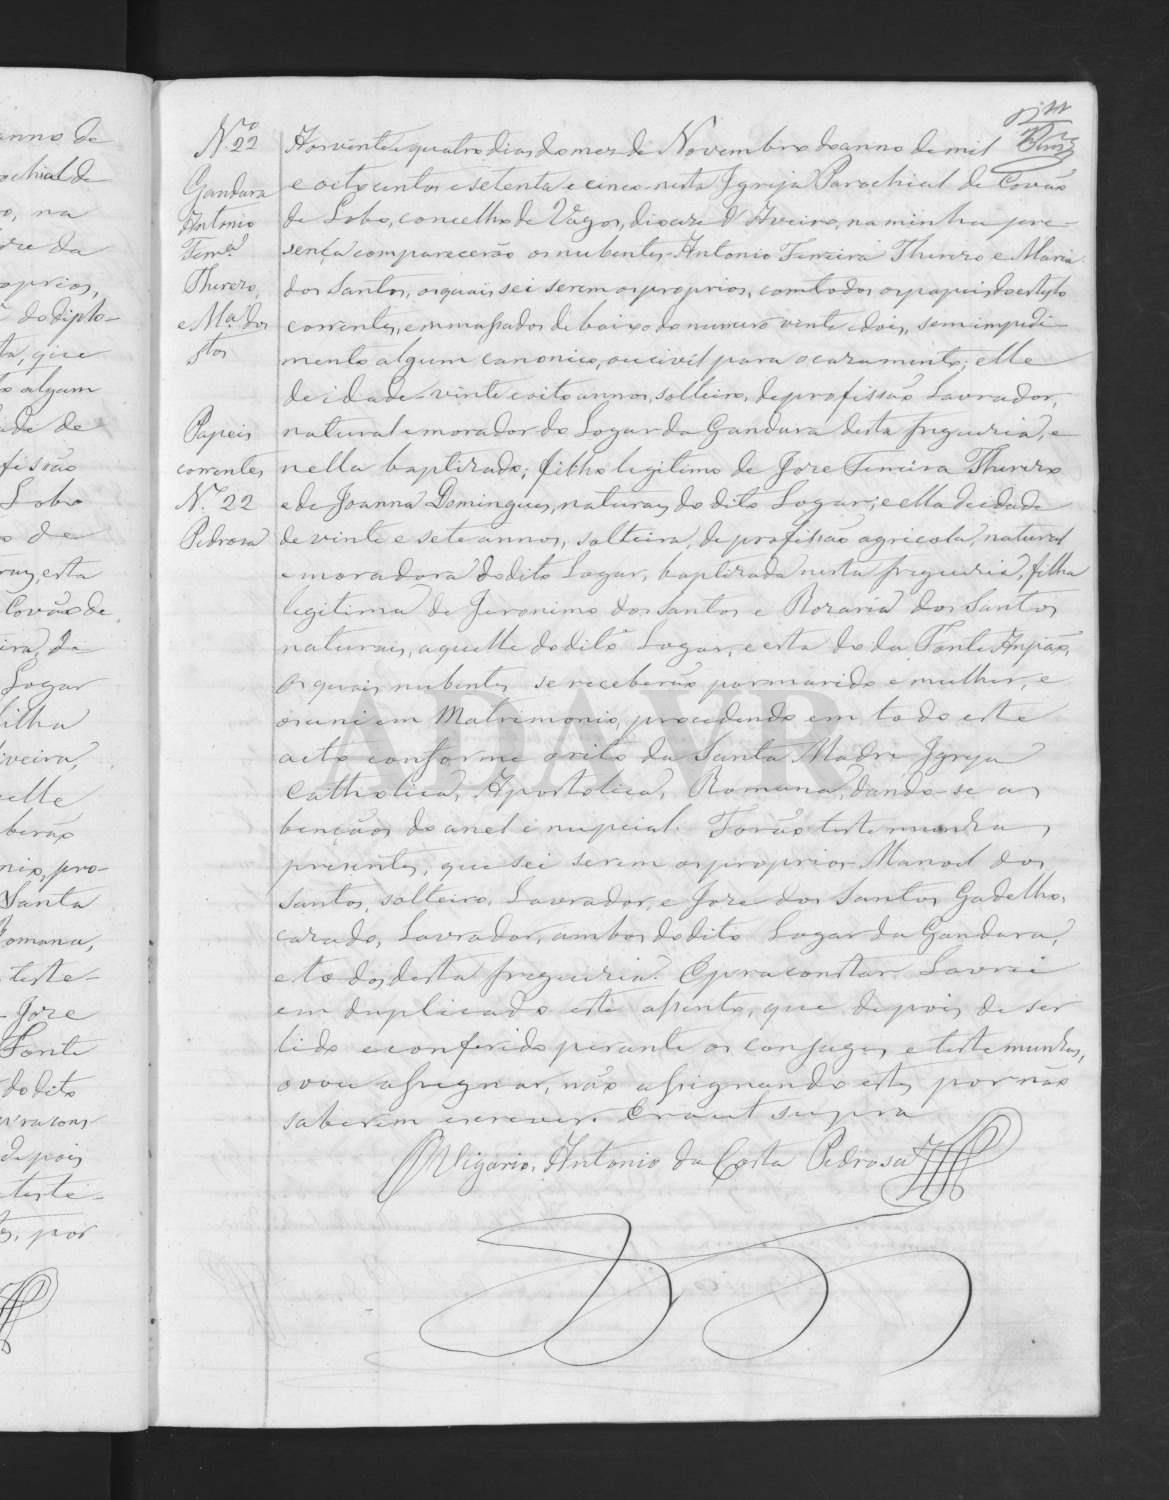 N.º 22
Gandara
Antonio
Ferr.ª
Thereza,
e M.ª dos
Stos
Papeis
correntes
N.º 22
Pedrosa
Aos vinte e quatro dias do mez de Novembro do anno de mil
e oito centos e setenta e cinco nesta Igreja Parochial de Covão
de Lobo, concelho de Vagos, diocese d'Aveiro, na minha pre-
sença comparecerão os nubentes Antonio Ferreira Therezo e Maria
dos Santos, os quais sei serem os proprios, com todos os papeis do estylo
correntes, emmassados de baixo do numero vinte e dois, sem impedi-
mento algum canonico, ou civil para o casamento; elle
de idade vinte e oito annos, solteiro, de profissão Lavrador,
natural e morador do Logar da Gandara desta freguezia, e
nella baptizado; filho legitimo de Joze Ferreira Therezo
e de Joanna Domingues, naturaes do dito Logar; e ella de idade
de vinte e sete annos, solteira, de profissão agricola, natural
e moradora do dito Logar, baptizada nesta freguezia, filha
legitima de Jeronimo dos Santos e Rozaria dos Santos
naturais, aquelle do dito Logar, e esta do da Fonte Anjião,
os quais nubentes se receberão por marido e mulher, e
os uni em Matrimonio, procedendo em todo este
acto conforme o rito da Santa Madre Igreja
Catholica, Apostolica, Romana, dando-se as
bençãos do anel e nupcial. Forão testemunhas
presentes, que sei serem os proprios Manoel dos
Santos, solteiro, Lavrador, e Joze dos Santos Gadelho,
cazado, Lavrador, ambos do dito Logar da Gandara,
e todos desta freguezia. E para constar Lavrei
em duplicado este assento, que depois de ser
lido e conferido perante os conjuges e testemunhas,
o vou assignar, não assignando estes por não
saberem escrever. Era ut supra
O Vigario, Antonio da Costa Pedrosa
ADAVR
anno de
ochial de
na
da
oprios,
do dipto-
ta, que
algum
ade de
fissão
Lobo
de
esta
Covão de
ira, da
Logar
filha
iveira,
elle
berão
nio, pro-
Santa
Romana,
teste-
Joze
Fonte
do dito
depois
teste-
por